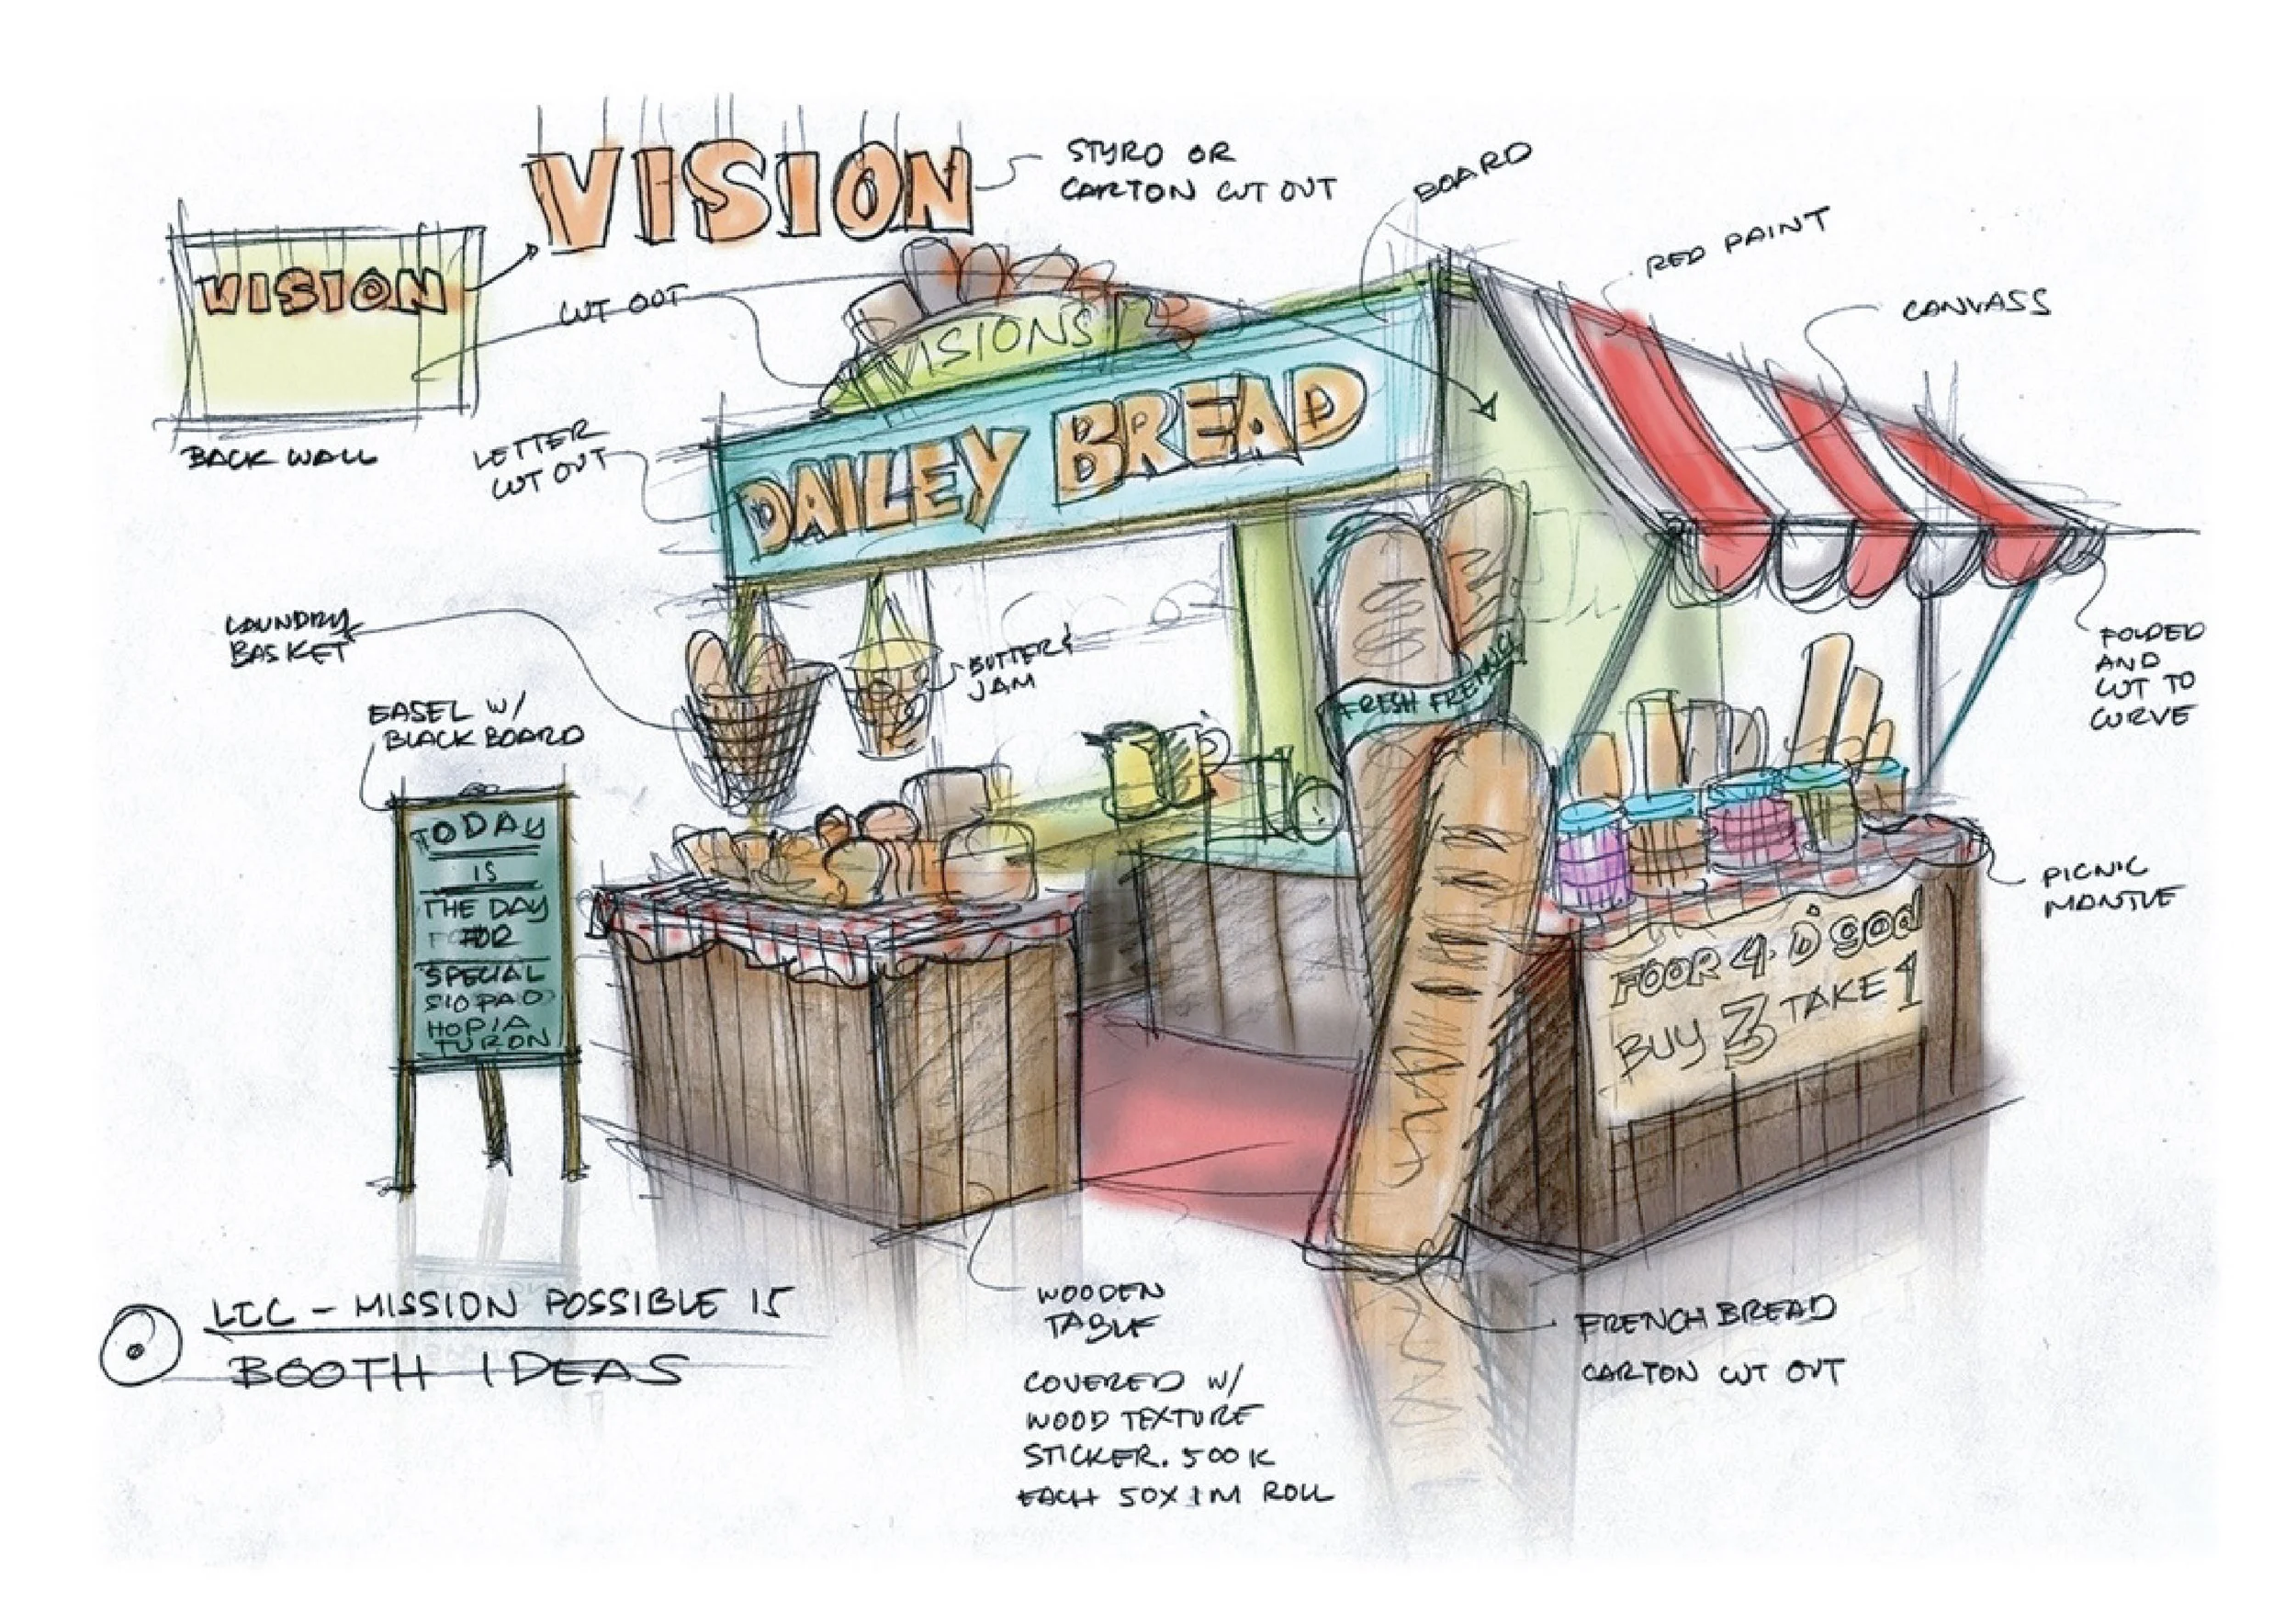 VISION
STYRO OR
CARTON CUT OUT
BOARD
RED PAINT
CANVASS
VISION
CUT OUT
VISIONS
BACK WALL
LETTER
CUT OUT
DAILEY BREAD
LAUNDRY
BASKET
BUTTER &
JAM
FRESH FRENCH
FOLDED
AND
CUT TO
CURVE
EASEL W/
BLACK BOARD
TODAY
IS
THE DAY
FOR
SPECIAL
SIOPAO
HOPIA
TURON
PICNIC
MANTLE
FOOR 4 D' god
BUY 3 TAKE 1
LCC - MISSION POSSIBLE 15
BOOTH IDEAS
WOODEN
TABLE
COVERED W/
WOOD TEXTURE
STICKER. 500K
EACH 50X1M ROLL
FRENCH BREAD
CARTON CUT OUT